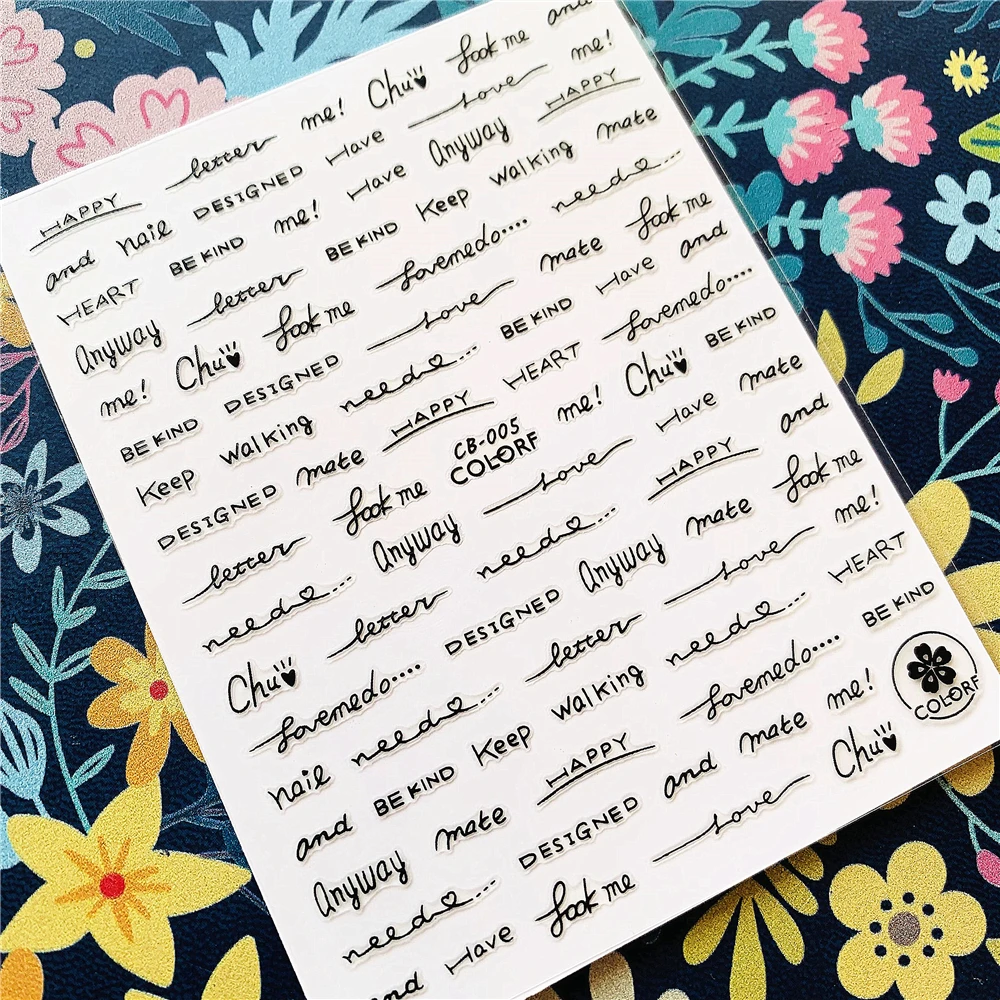 HAPPY letter me! Chu look me and
and nail DESIGNED Have Love me!
HEART BE KIND me! Have Anyway HAPPY
Anyway letter BE KIND Keep walking mate
me! Chu look me lovemedo.... need...
BE KIND DESIGNED Love mate look me
Keep walking need... BE KIND Have and
DESIGNED mate HAPPY HEART lovemedo....
letter look me CB-005 me! Chu BE KIND
COLORF
need... Anyway Love Have mate
Chu letter need... HAPPY and
lovemedo.... DESIGNED Anyway mate look me
nail need... letter Love me!
and BE KIND Keep walking need... HEART
Anyway mate HAPPY lovemedo.... BE KIND
need... DESIGNED and mate me! COLORF
and Have look me Love Chu